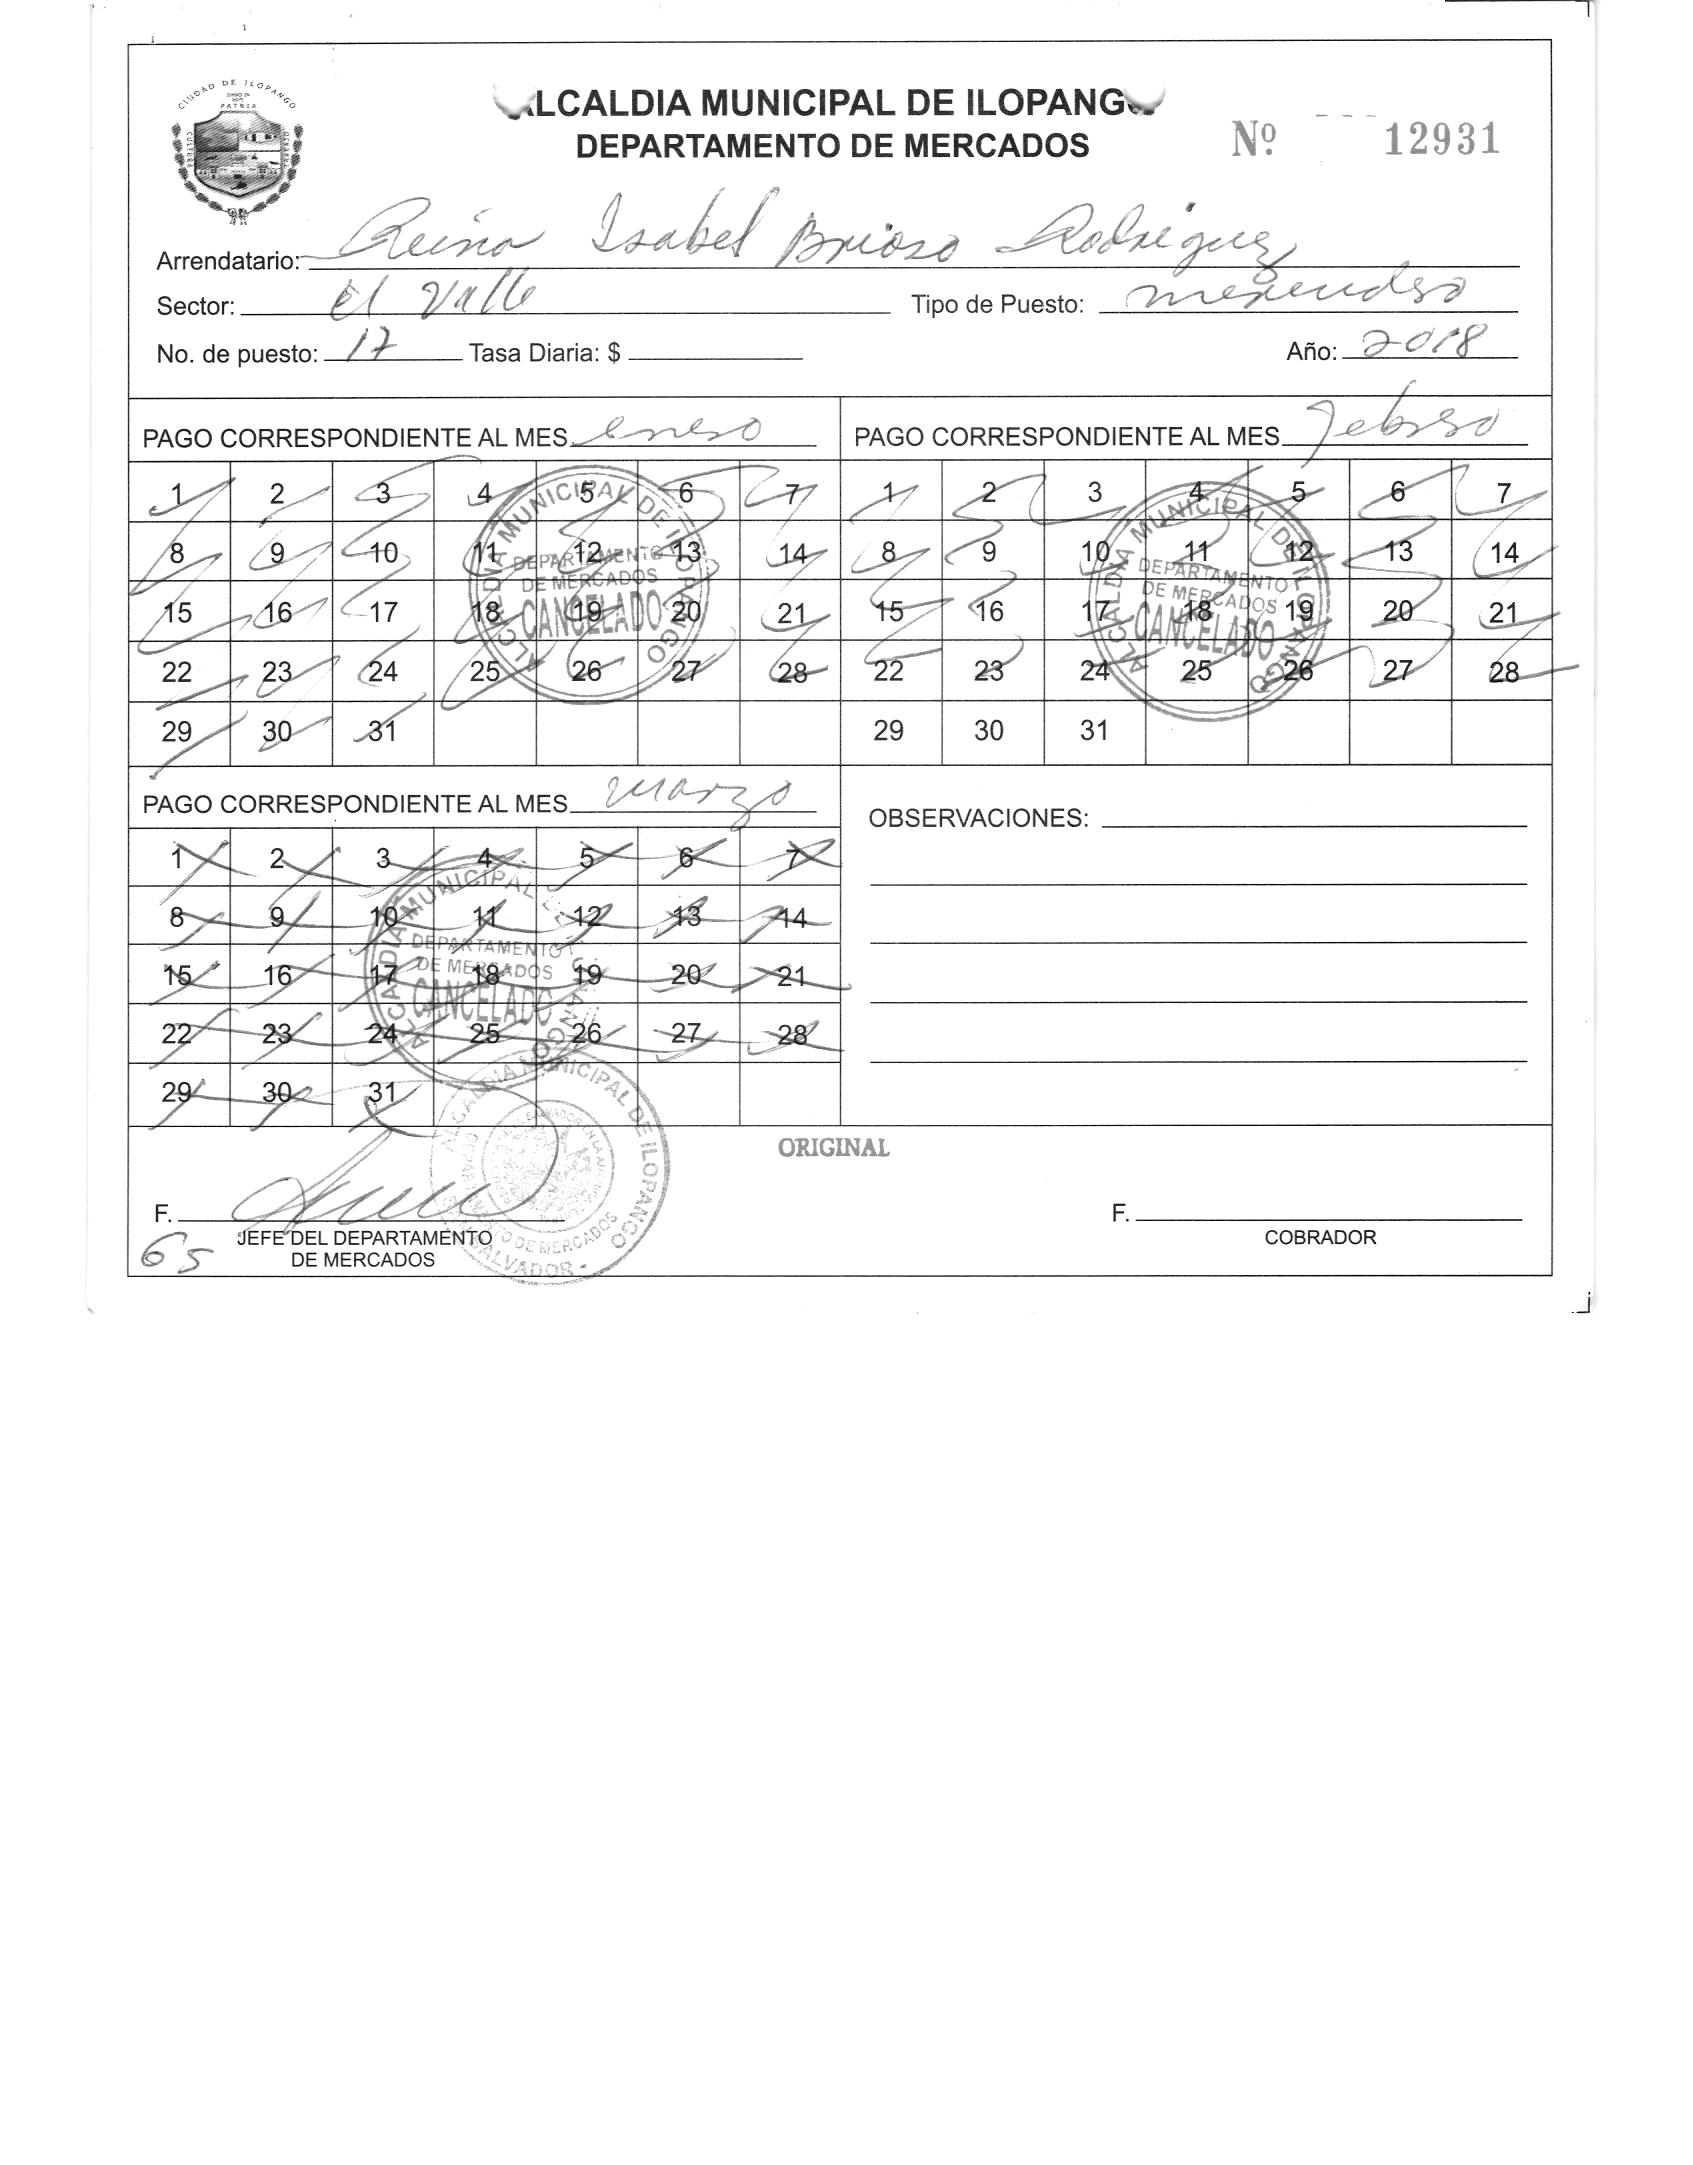 CIUDAD DE ILOPANGO
PATRIA
CULTURA
ALCALDIA MUNICIPAL DE ILOPANGO
DEPARTAMENTO DE MERCADOS
Nº 12931
Arrendatario: Reina Isabel Brioso Rodriguez
Sector: El Valle Tipo de Puesto: merendero
No. de puesto: 17 Tasa Diaria: $ Año: 2018
PAGO CORRESPONDIENTE AL MES enero
1 2 3 4 5 6 7
8 9 10 11 12 13 14
15 16 17 18 19 20 21
22 23 24 25 26 27 28
29 30 31
ALCALDIA MUNICIPAL DE ILOPANGO
DEPARTAMENTO
DE MERCADOS
CANCELADO
PAGO CORRESPONDIENTE AL MES febrero
1 2 3 4 5 6 7
8 9 10 11 12 13 14
15 16 17 18 19 20 21
22 23 24 25 26 27 28
29 30 31
ALCALDIA MUNICIPAL DE ILOPANGO
DEPARTAMENTO
DE MERCADOS
CANCELADO
PAGO CORRESPONDIENTE AL MES marzo
1 2 3 4 5 6 7
8 9 10 11 12 13 14
15 16 17 18 19 20 21
22 23 24 25 26 27 28
29 30 31
ALCALDIA MUNICIPAL DE ILOPANGO
DEPARTAMENTO
DE MERCADOS
CANCELADO
OBSERVACIONES:
ORIGINAL
F.
JEFE DEL DEPARTAMENTO
DE MERCADOS
65
ALCALDIA MUNICIPAL DE ILOPANGO
DEPARTAMENTO DE MERCADOS
SALVADOR
F.
COBRADOR